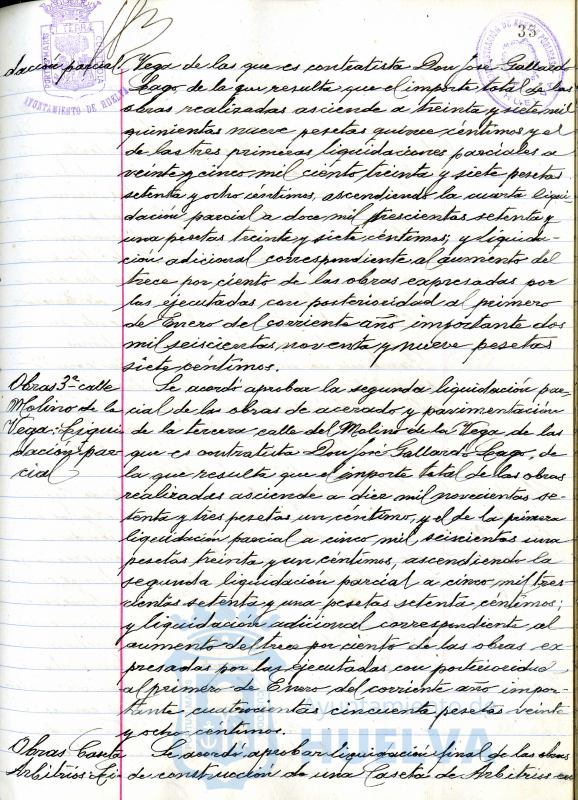 33
PORTUS MARIS ET TERRAE CUSTODIA
AYUNTAMIENTO DE HUELVA
dación parcial
Vega de las que es contratista Don José Gallardo
Lago, de la que resulta que el importe total de las
obras realizadas asciende a treinta y siete mil
quinientas nueve pesetas quince céntimos y el
de las tres primeras liquidaciones parciales a
veinte y cinco mil ciento treinta y siete pesetas
setenta y ocho céntimos, ascendiendo la cuarta liqui-
dación parcial a doce mil trescientas setenta y
una pesetas treinta y siete céntimos; y liquida-
ción adicional correspondiente al aumento del
trece por ciento de las obras expresadas por
las ejecutadas con posterioridad al primero
de Enero del corriente año, importante dos
mil seiscientas noventa y nueve pesetas
siete céntimos.
Obras 3ª calle
Molino de la
Vega: Liqui-
dación par-
cial
Se acordó aprobar la segunda liquidación par-
cial de las obras de acerado y pavimentación
de la tercera calle del Molino de la Vega de las
que es contratista Don José Gallardo Lago, de
la que resulta que el importe total de las obras
realizadas asciende a diez mil novecientas se-
tenta y tres pesetas un céntimo, y el de la primera
liquidación parcial a cinco mil seiscientas una
pesetas treinta y un céntimos, ascendiendo la
segunda liquidación parcial a cinco mil tres-
cientas setenta y una pesetas setenta céntimos;
y liquidación adicional correspondiente al
aumento del trece por ciento de las obras ex-
presadas por las ejecutadas con posterioridad
al primero de Enero del corriente año impor-
tante cuatrocientas cincuenta pesetas veinte
y ocho céntimos.
Obras Caseta
Arbitrios: Li-
Se acordó aprobar liquidación final de las obras
de construcción de una Caseta de Arbitrios en
Ayuntamiento de
HUELVA